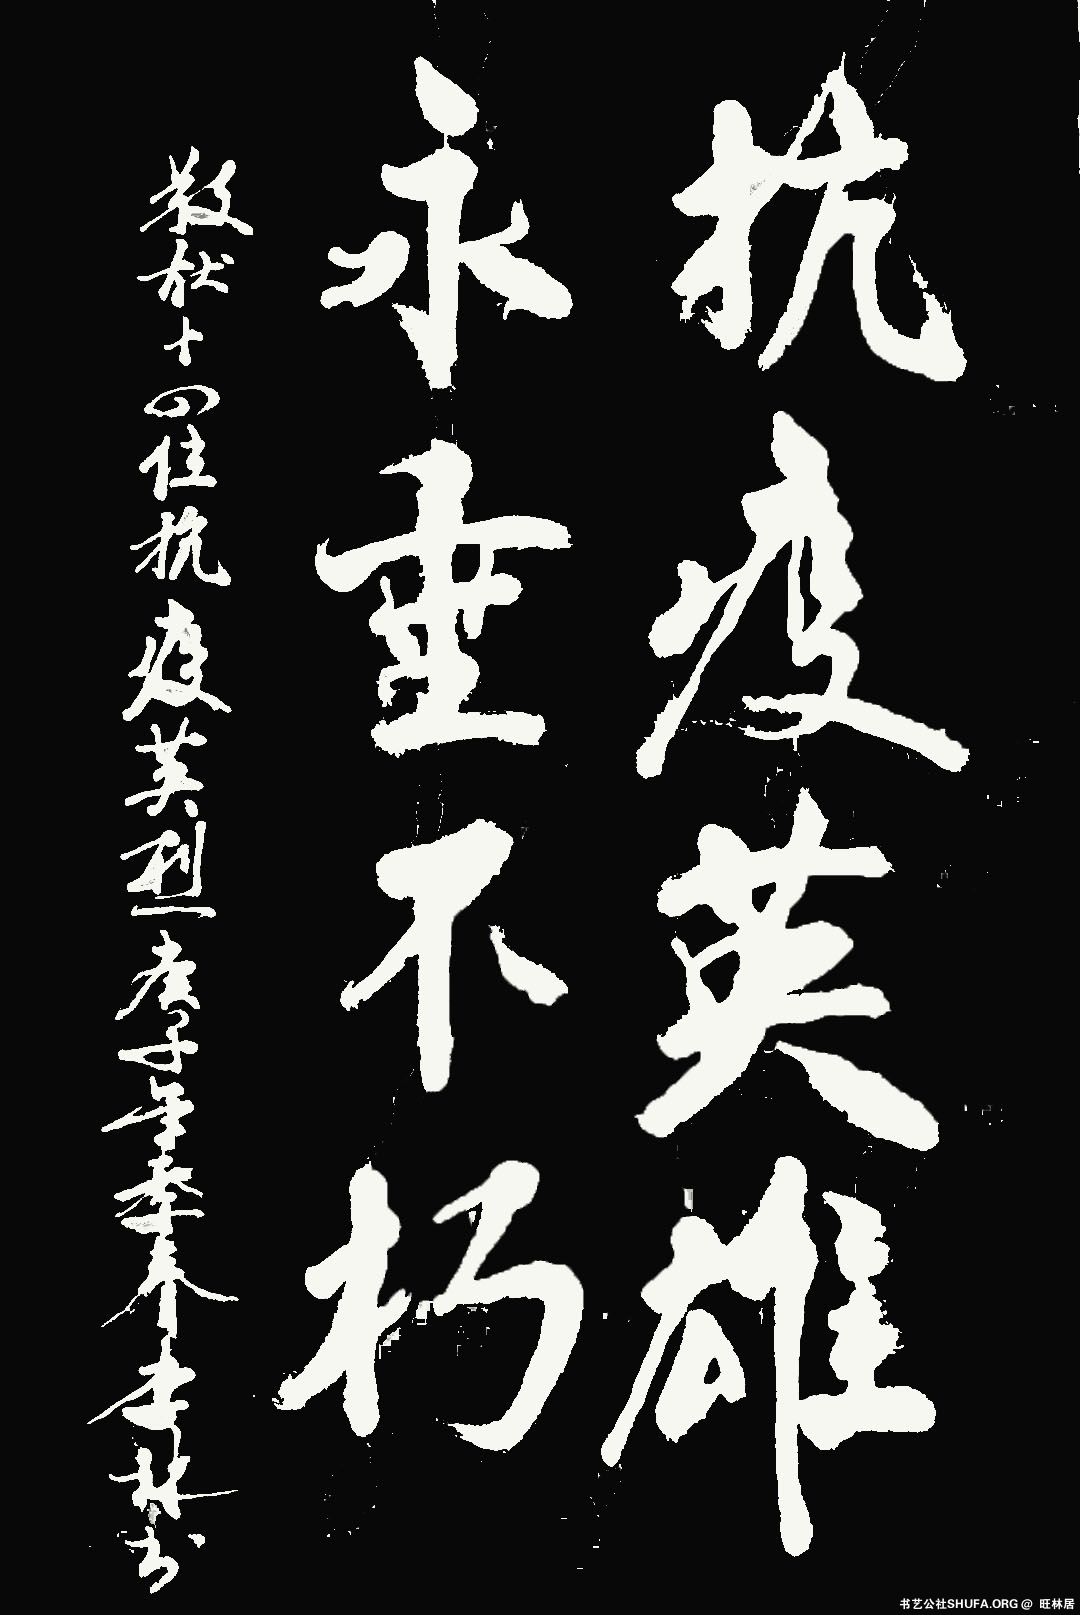 抗疫英雄
永垂不朽
敬献十四位抗疫英烈庚子年季春李林书
书艺公社SHUFA.ORG @ 旺林居